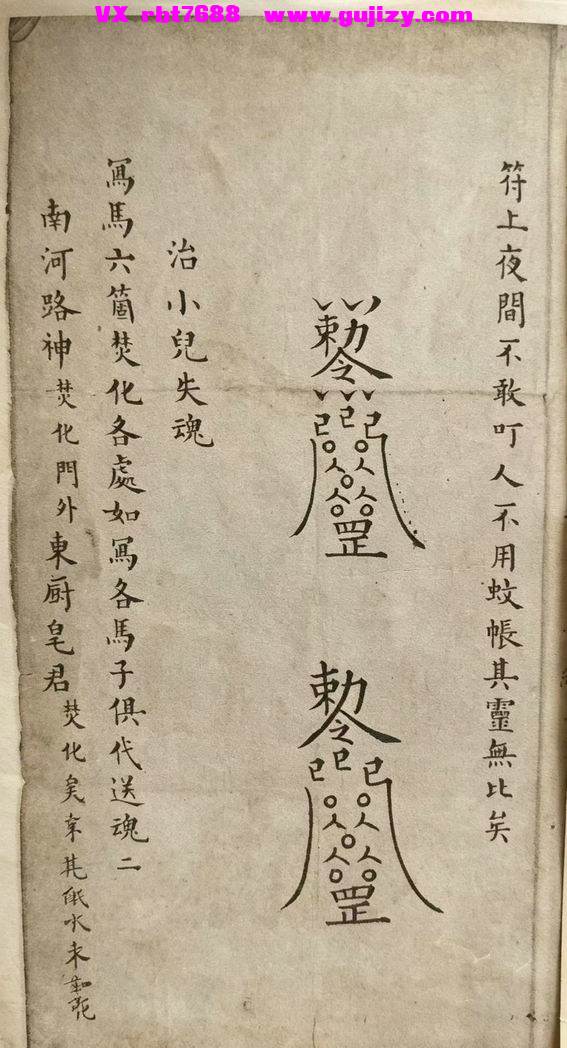 VX rbt7688 www.gujizy.com
符上夜間不敢叮人不用蚊帳其靈無比矣
勅令
己己己
罡
勅令
己己己
罡
治小兒失魂
寫馬六箇焚化各處如寫各馬子俱代送魂二
南河路神焚化門外東厨皂君焚化矣
水未